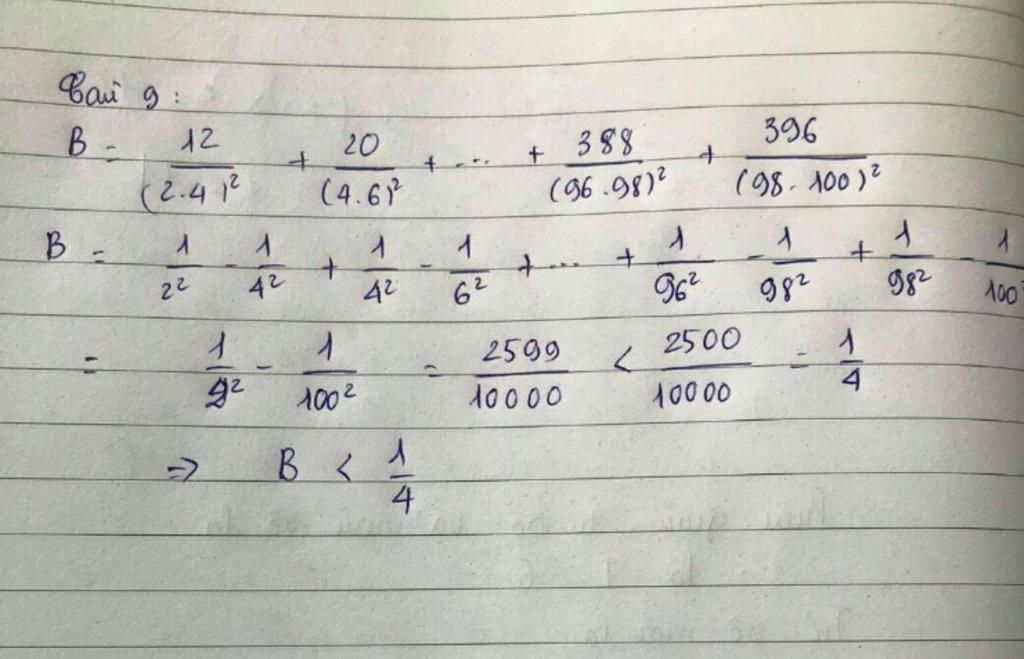 Bài 9:
B = 12/(2.4)² + 20/(4.6)² + ... + 388/(96.98)² + 396/(98.100)²
B = 1/2² - 1/4² + 1/4² - 1/6² + ... + 1/96² - 1/98² + 1/98² - 1/100²
= 1/2² - 1/100² = 2599/10000 < 2500/10000 = 1/4
=> B < 1/4